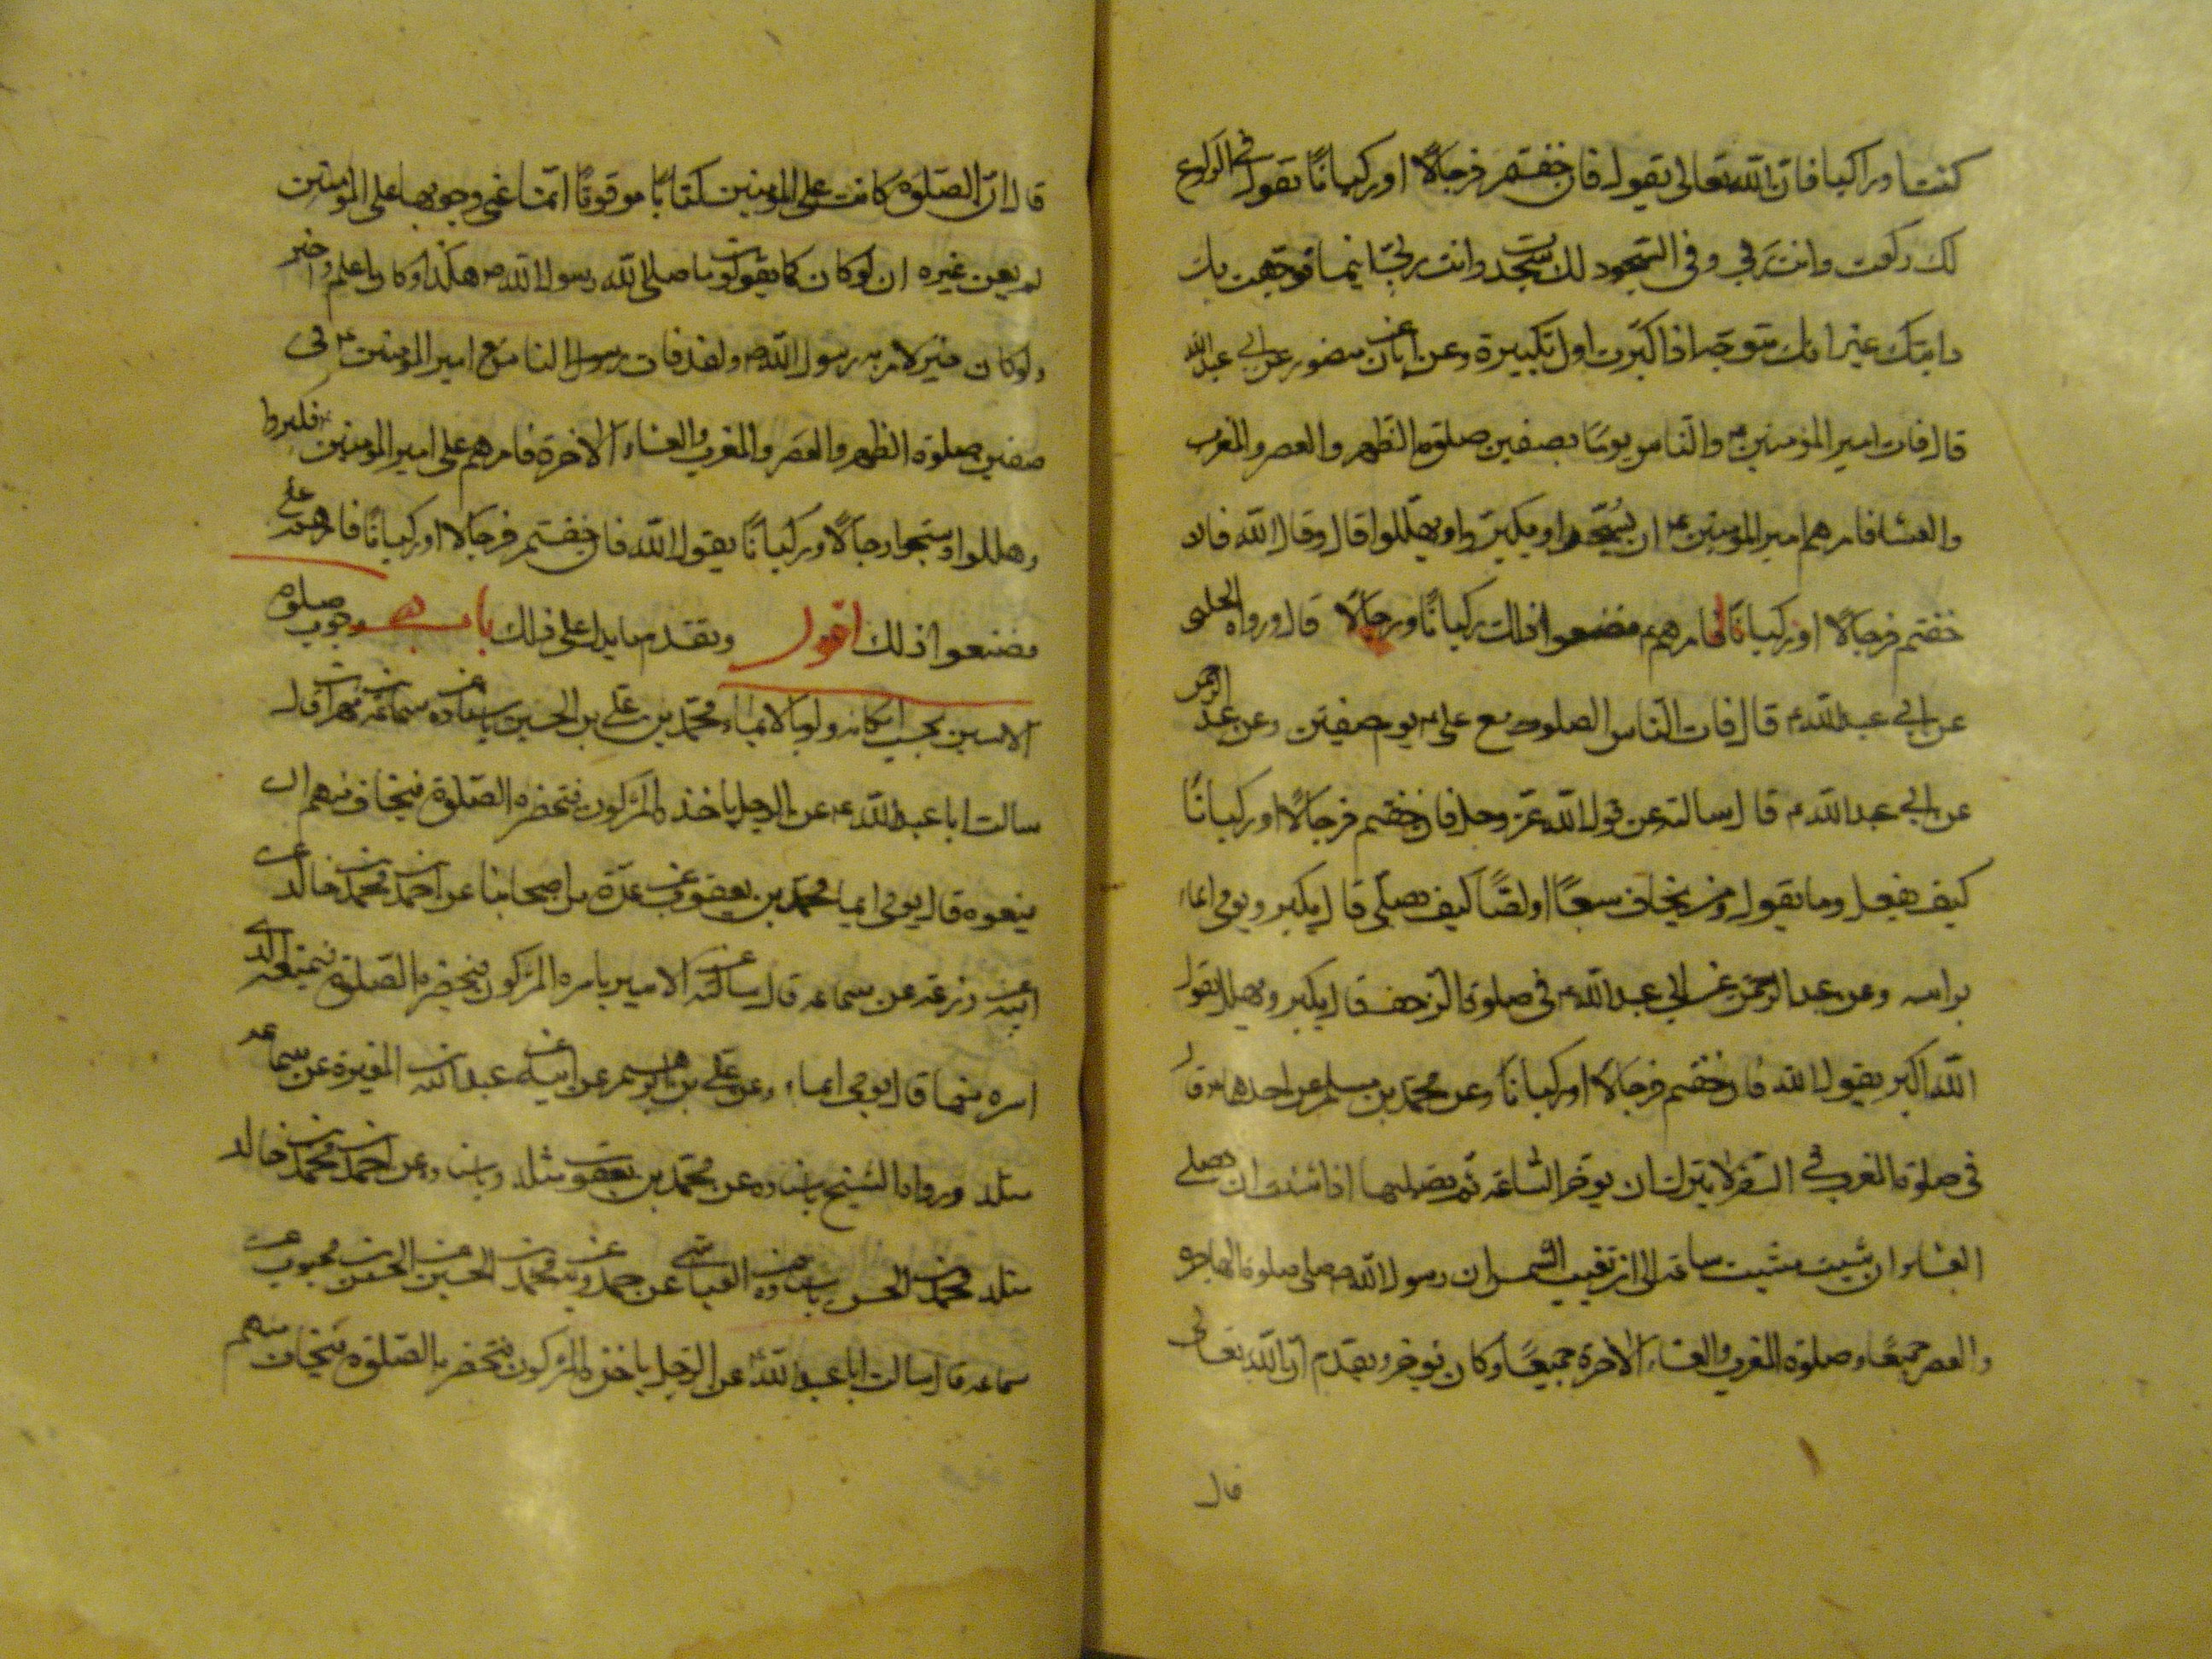 كنت او راكبا فان الله تعالى يقول فان خفتم فرجالًا او ركبانًا تقول في الركوع
لك ركعت وانت ربي وفي السجود لك سجدت وانت ربي اينما توجهت بك
دابتك غير انك متوجه اذا كبرت اول تكبيرة وعن ابان عن منصور عن ابي عبد الله
قال فات امير المؤمنين والناس يومًا بصفين صلوة الظهر والعصر والمغرب
والعشا فامرهم امير المؤمنين ان يسبحوا ويكبروا ويهللوا قال وقال الله فان
خفتم فرجالًا او ركبانًا فامرهم فصنعوا ذلك ركبانًا ورجالًا قال ورواه الحلبي
عن ابي عبد الله قال فات الناس الصلوة مع علي يوم صفين وعن عبد الرحمن
عن ابي عبد الله قال سالته عن قول الله عز وجل فان خفتم فرجالًا او ركبانًا
كيف يفعل وما يقول ومن يخاف سبعًا او لصًا كيف يصلي قال يكبر ويومي ايماء
براسه وعن عبد الرحمن عن ابي عبد الله في صلوة الزحف قال يكبر ويهلل يقول
الله اكبر يقول الله فان خفتم فرجالًا او ركبانًا وعن محمد بن مسلم عن احدهما قال
في صلوة المغرب في السفر لا يترك ان يوخر الساعة ثم يصليها اذا شئت ان تصلي
العشاء وان شئت مشيت ساعة الى ان تغيب الشمس ان رسول الله صلى صلوة الهاجرة
والعصر جميعًا وصلوة المغرب والعشاء الاخرة جميعًا وكان يوخر ويقدم ان الله تعالى
قال
قال ان الصلوة كانت على المؤمنين كتابًا موقوتًا انما عنى وجوبها على المؤمنين
لم يعن غيره ان لو كان كما يقولون ما صلى رسول الله هكذا وكان اعلم واخبر
ولو كان خيرًا لامر به رسول الله ولقد فات الناس مع امير المؤمنين في
صفين صلوة الظهر والعصر والمغرب والعشاء الاخرة فامرهم علي امير المؤمنين فكبروا
وهللوا وسبحوا رجالًا وركبانًا يقول الله فان خفتم فرجالًا او ركبانًا فامرهم علي
فصنعوا ذلك اقول وتقدم ما يدل على ذلك باب وجوب صلوة
الاسير بحسب امكانه ولو بالايماء محمد بن علي بن الحسين باسناده عن سماعة بن مهران قال
سالت ابا عبد الله عن الرجل ياخذه المشركون فتحضره الصلوة فيخاف منهم ان
يمنعوه قال يومي ايماء محمد بن يعقوب عن عدة من اصحابنا عن احمد بن محمد بن خالد عن
ابيه عن زرعة عن سماعة قال سالته عن الاسير ياسره المشركون فتحضره الصلوة فيمنعه الذي
اسره منها قال يومي ايماء وعن علي بن ابراهيم عن ابيه عن عبد الله بن المغيرة عن سماعة
مثله ورواه الشيخ باسناده عن محمد بن يعقوب مثله وباسناده عن احمد بن محمد بن خالد
مثله محمد بن الحسن باسناده عن العياشي عن حمدويه عن محمد بن الحسين عن الحسن بن محبوب عن
سماعة قال سالت ابا عبد الله عن الرجل ياخذه المشركون فتحضره الصلوة فيخاف منهم